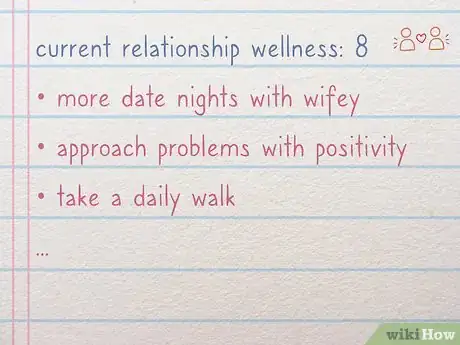 current relationship wellness: 8
• more date nights with wifey
• approach problems with positivity
• take a daily walk
...
wikiHow